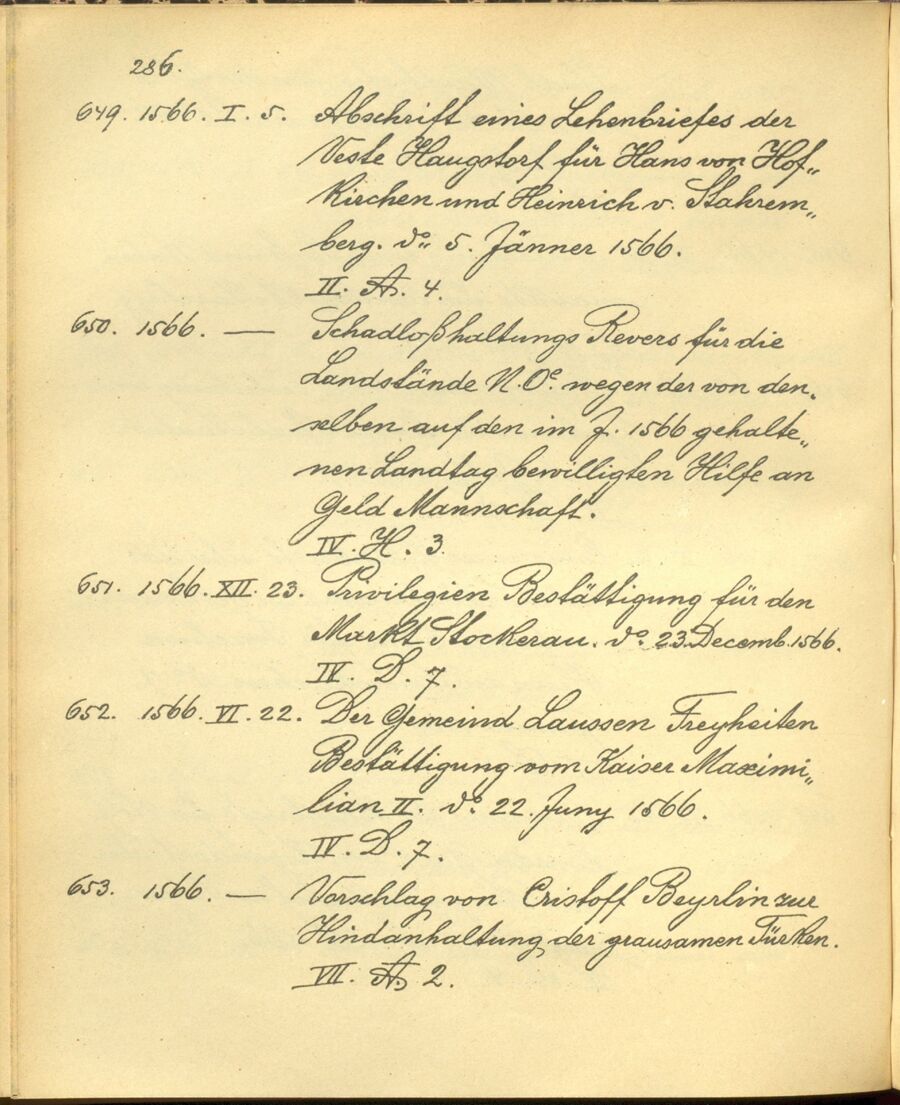 286.
649. 1566. I. 5. Abschrift eines Lehenbriefes der
Veste Haugstorf für Hans von Hof„
Kirchen und Heinrich v. Stahrem„
berg. do„ 5. Jänner 1566.
II. A. 4.
650. 1566. — Schadloßhaltungs Revers für die
Landstände N. Oe. wegen der von den„
selben auf den im J. 1566 gehalte„
nen Landtag bewilligten Hilfe an
Geld Mannschaft.
IV. H. 3.
651. 1566. XII. 23. Privilegien Bestättigung für den
Markt Stockerau. do. 23. Decemb. 1566.
IV. D. 7.
652. 1566. VI. 22. Der Gemeind Laussen Freyheiten
Bestättigung vom Kaiser Maximi„
lian II. do. 22. Juny 1566.
IV. D. 7.
653. 1566. — Vorschlag von Cristoff Beyrlin zur
Hindanhaltung der grausamen Türken.
VII. A. 2.